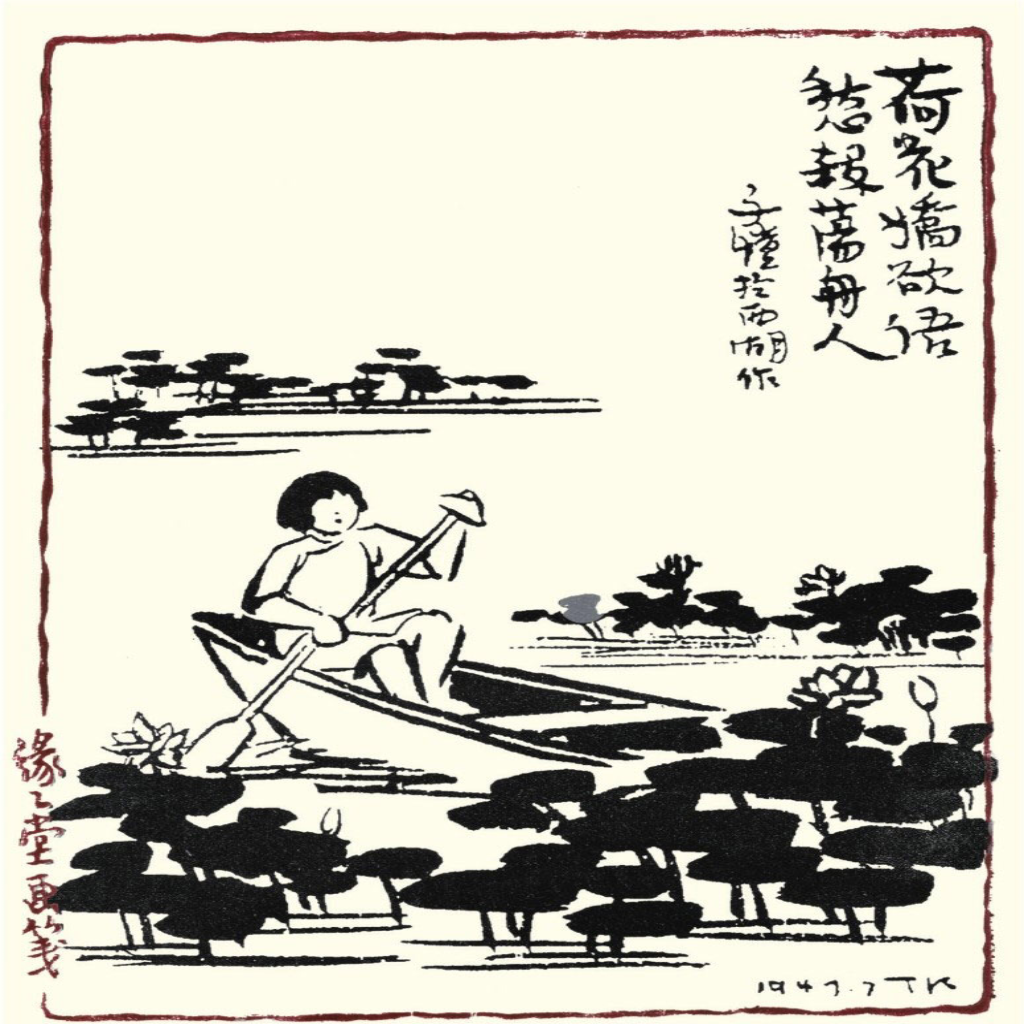 荷花嬌欲語
愁殺蕩舟人
子愷於西湖作
緣々堂画箋
1947.7 TK